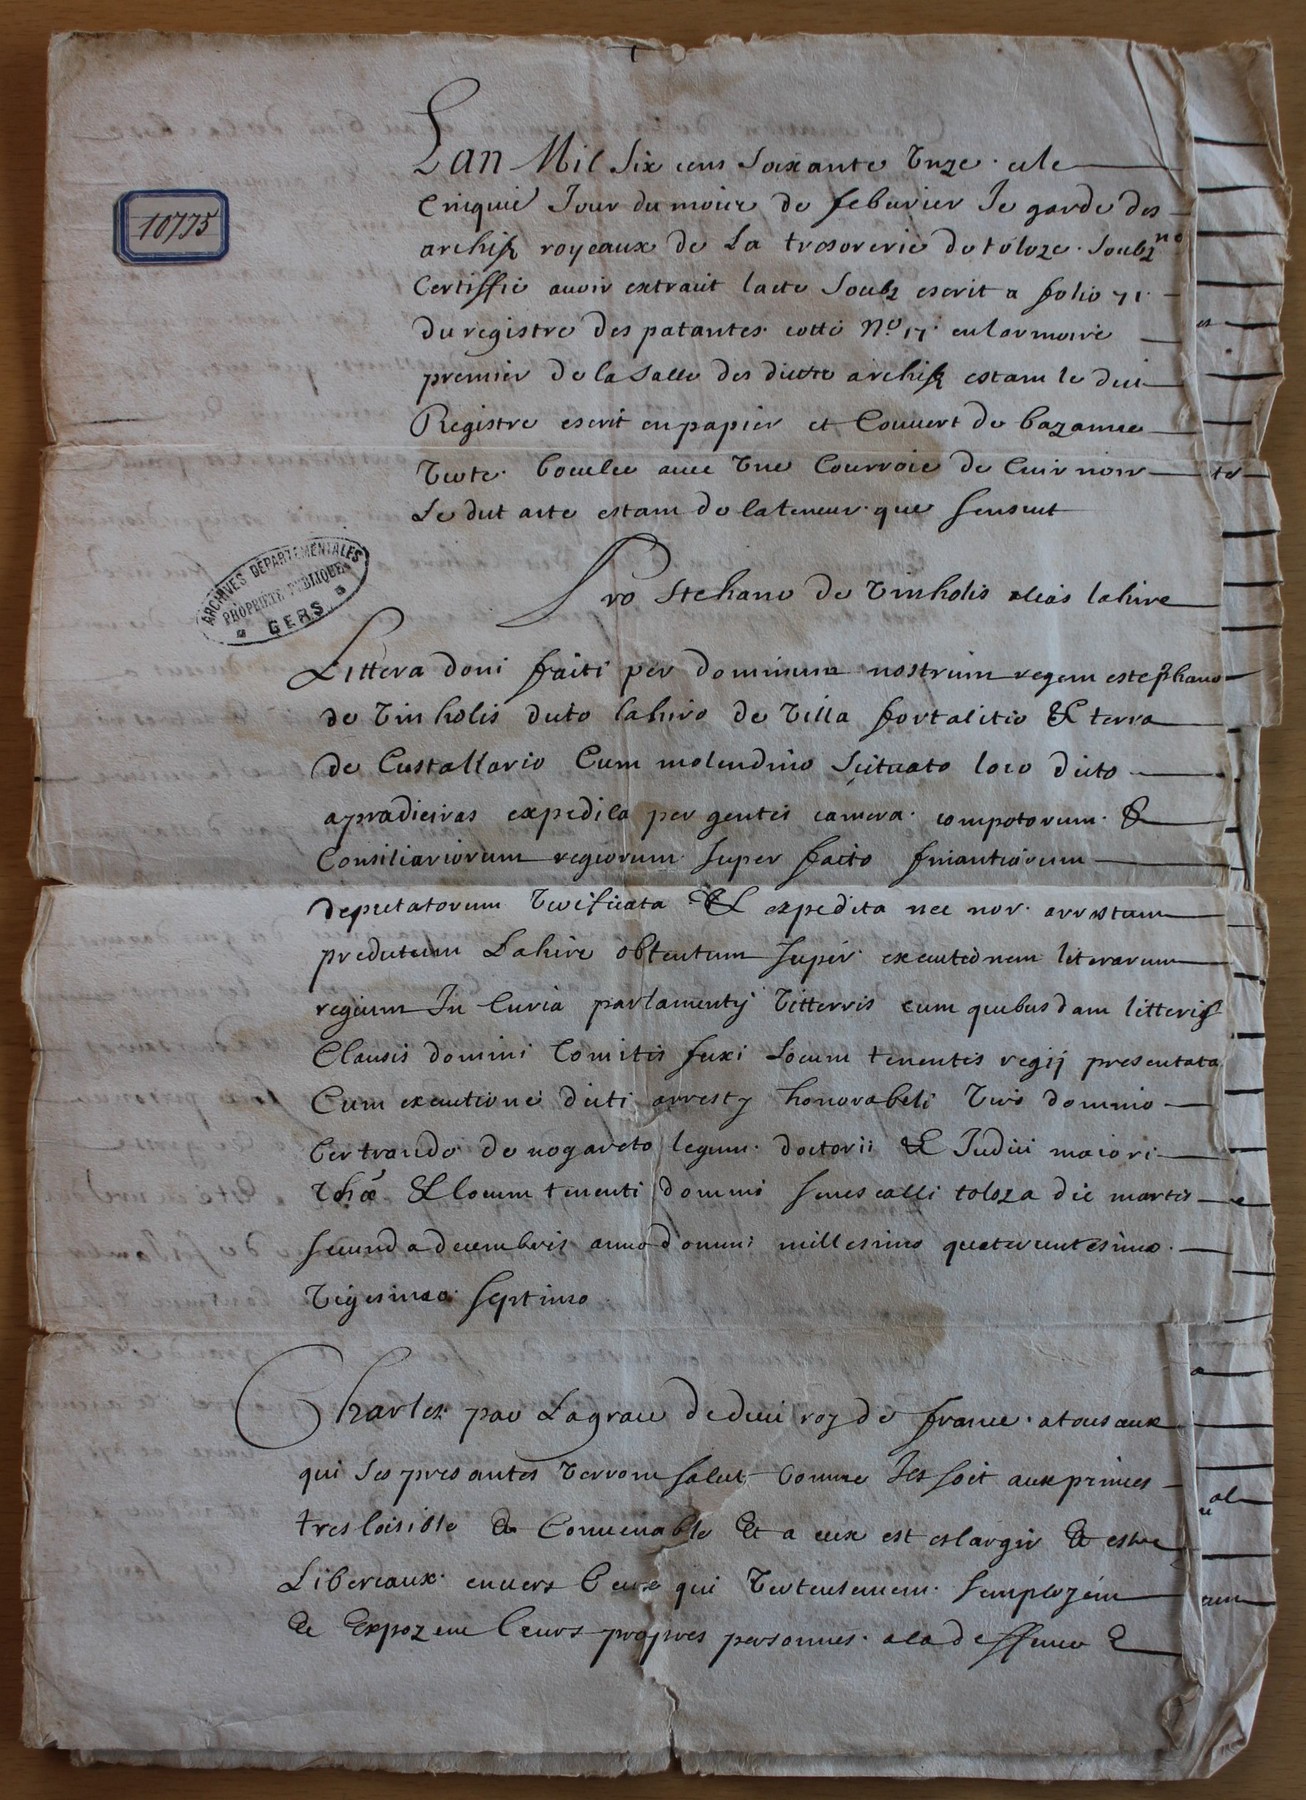 10775
Lan Mil six cens soixante Unze et le
Cinquie Jour du moice de feburier Je garde des
archifz royeaux de La tresorerie de toloze soubzne
Certiffie auoir extrait lacte soubz escrit a folio 71
du registre des patantes cotte No 17 en larmoire
premier de la salle des dictes archifz estant le dict
Registre escrit en papier et Couuert de bazanne
Verte bouclee auec Vne Courroie de Cuir noir
Le dict acte estant de la teneur que sensuit
ARCHIVES DÉPARTEMENTALES
PROPRIÉTÉ PUBLIQUE
GERS
Pro Stehano de Vinholis alias lahire
Littera doni facti per dominum nostrum regem estephano
de Vinholis dicto lahiro de Villa fortalitio & terra
de Custallario Cum molendino scituato loco dicto
apradieiras expedita per gentes camera compotorum &
Consiliariorum regiorum super facto finantiarum
deputatorum Verificata & expedita nec non arrestum
predictum Lahire obtentum super executionem literarum
regium In Curia parlamenty Bitterris cum quibusdam litteris
Clausis domini Comitis fuxi Locum tenentis regij presentata
Cum executione dicti arresty honorabili Viro domino
bertrando de nogareto legum doctorii & Judici maiori
Tholoe & locum tenenti domini senescalli toloza die martis
secunda decembris anno domini millesimo quatercentesimo
Vigesimo septimo
Charles par Lagrace de dieu roy de france atous ceux
qui Ses presantes Verront salut Comme Jls soit aux princes
tres loisible & Conuenable Et a eux est eslargir Et estre
Liberaux enuers Ceux qui Vertueusement semployent
Et Expozent leurs propres personnes a la deffence